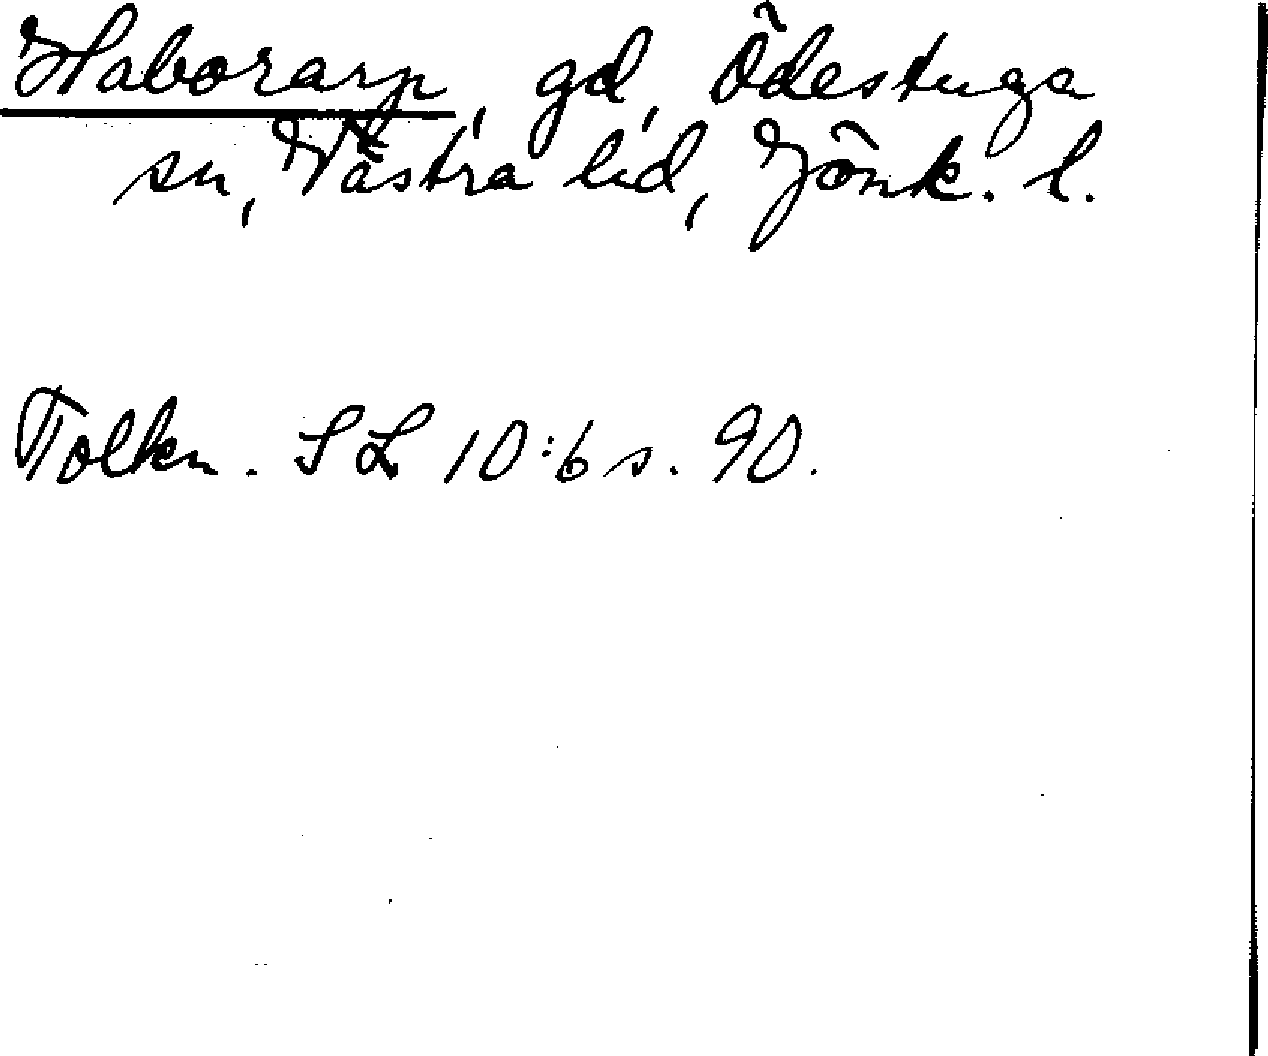 Haborarp, gd, Ödestuga
sn, Västra hd, Jönk. l.
Tolkn. SL 10:6 s. 90.